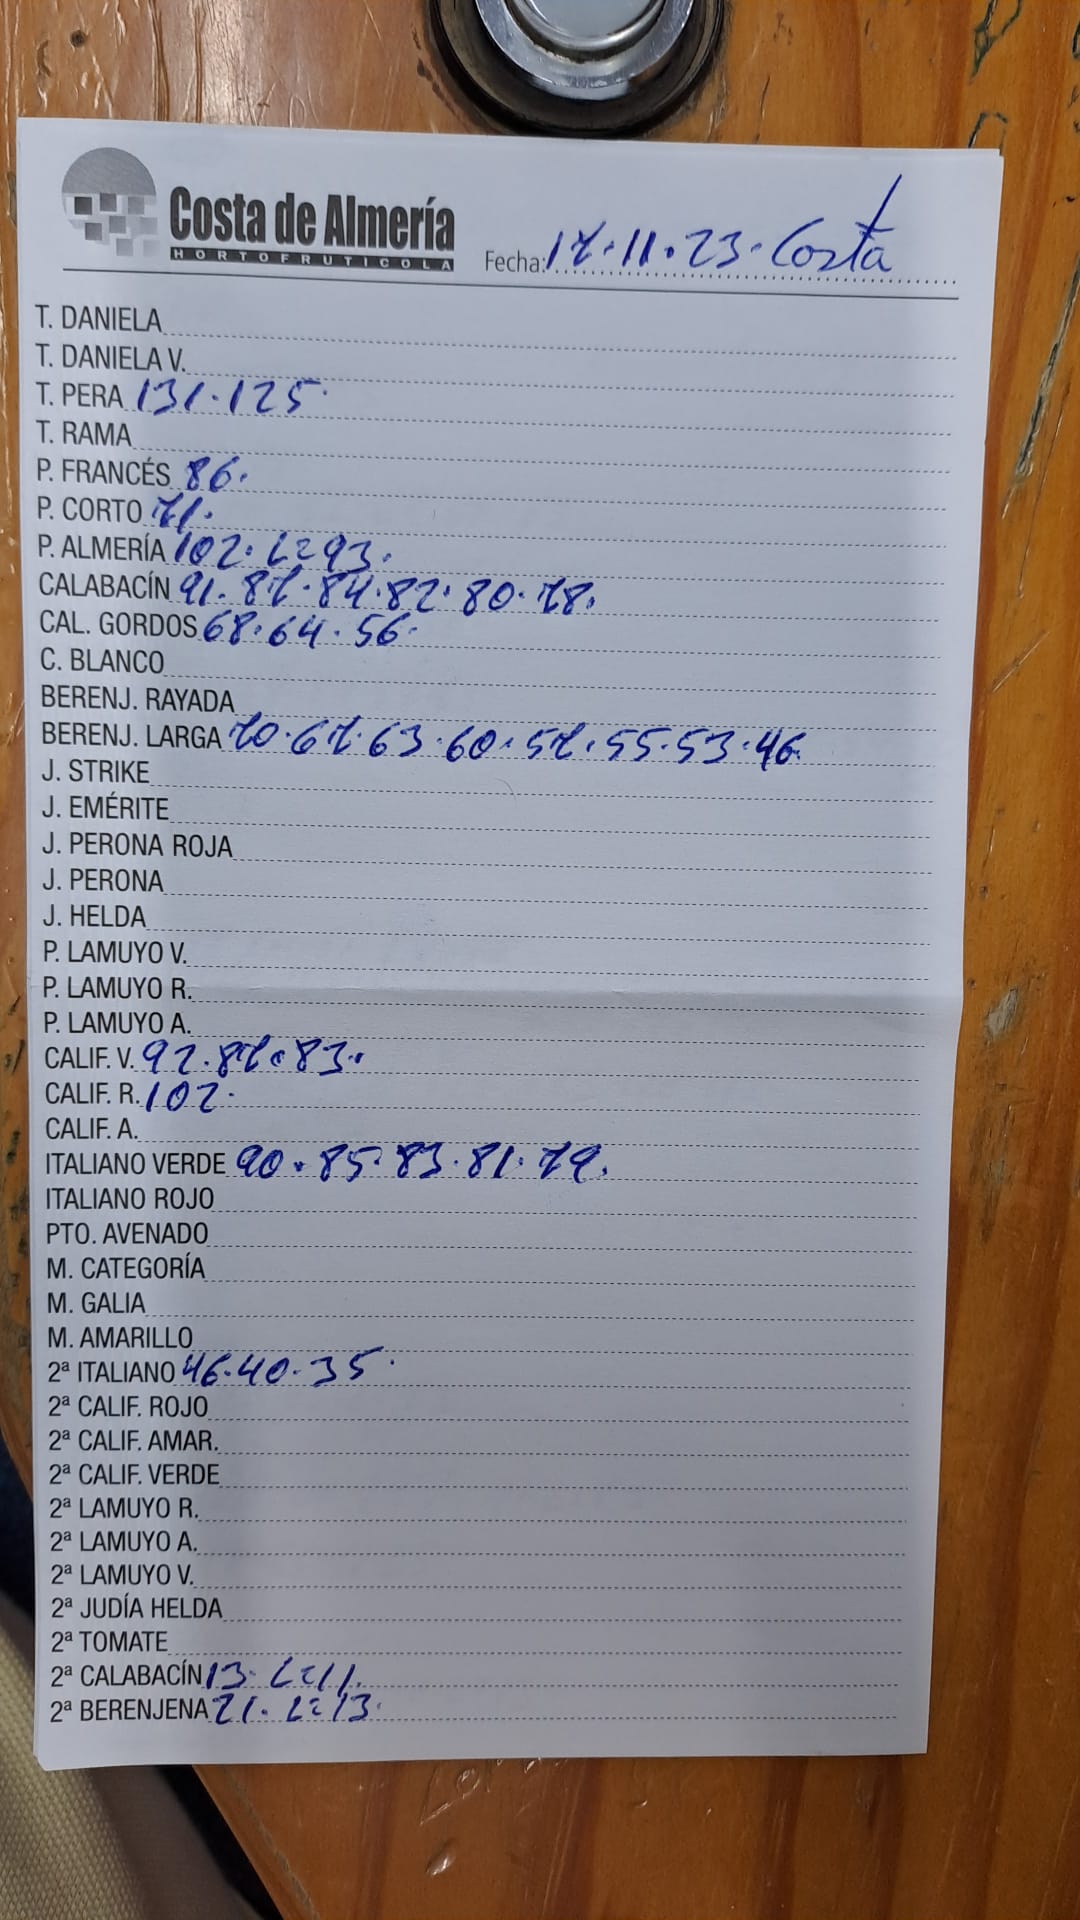 Costa de Almería
HORTOFRUTICOLA
Fecha: 17.11.23. Costa
T. DANIELA
T. DANIELA V.
T. PERA 131.125.
T. RAMA
P. FRANCÉS 86.
P. CORTO 71.
P. ALMERÍA 102. L=93.
CALABACÍN 91. 87. 84. 82. 80. 78.
CAL. GORDOS 68. 64. 56.
C. BLANCO
BERENJ. RAYADA
BERENJ. LARGA 70. 67. 63. 60. 57. 55. 53. 46.
J. STRIKE
J. EMÉRITE
J. PERONA ROJA
J. PERONA
J. HELDA
P. LAMUYO V.
P. LAMUYO R.
P. LAMUYO A.
CALIF. V. 92. 87. 83.
CALIF. R. 102.
CALIF. A.
ITALIANO VERDE 90. 85. 83. 81. 79.
ITALIANO ROJO
PTO. AVENADO
M. CATEGORÍA
M. GALIA
M. AMARILLO
2ª ITALIANO 46. 40. 35.
2ª CALIF. ROJO
2ª CALIF. AMAR.
2ª CALIF. VERDE
2ª LAMUYO R.
2ª LAMUYO A.
2ª LAMUYO V.
2ª JUDÍA HELDA
2ª TOMATE
2ª CALABACÍN 13. L=11.
2ª BERENJENA 21. L=13.